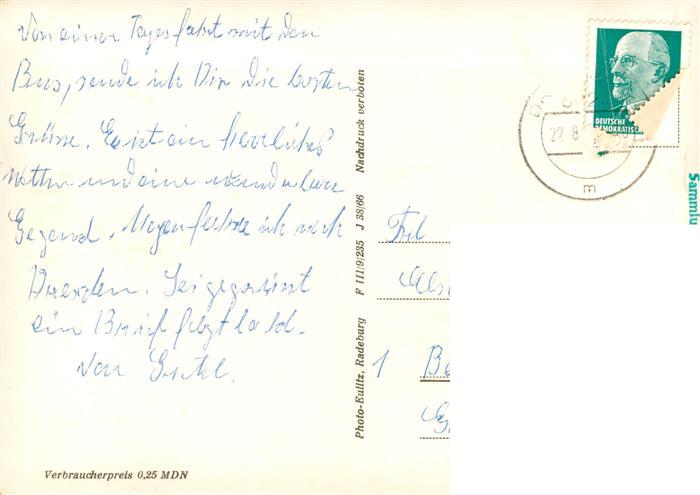 Von einer Tagesfahrt mit dem
Bus, sende ich Dir die besten
Grüsse. Es ist ein herrliches
Wetter und eine wunderbare
Gegend. Morgen fahre ich nach
Dresden. Sei gegrüsst
ein Brief folgt bald.
Von
Verbraucherpreis 0,25 MDN
Photo-Eulitz, Radeburg F III/9/235 J 38/66 Nachdruck verboten
Frl
1 Be
DEUTSCHE
DEMOKRATISC
22.8
m
Sammlu